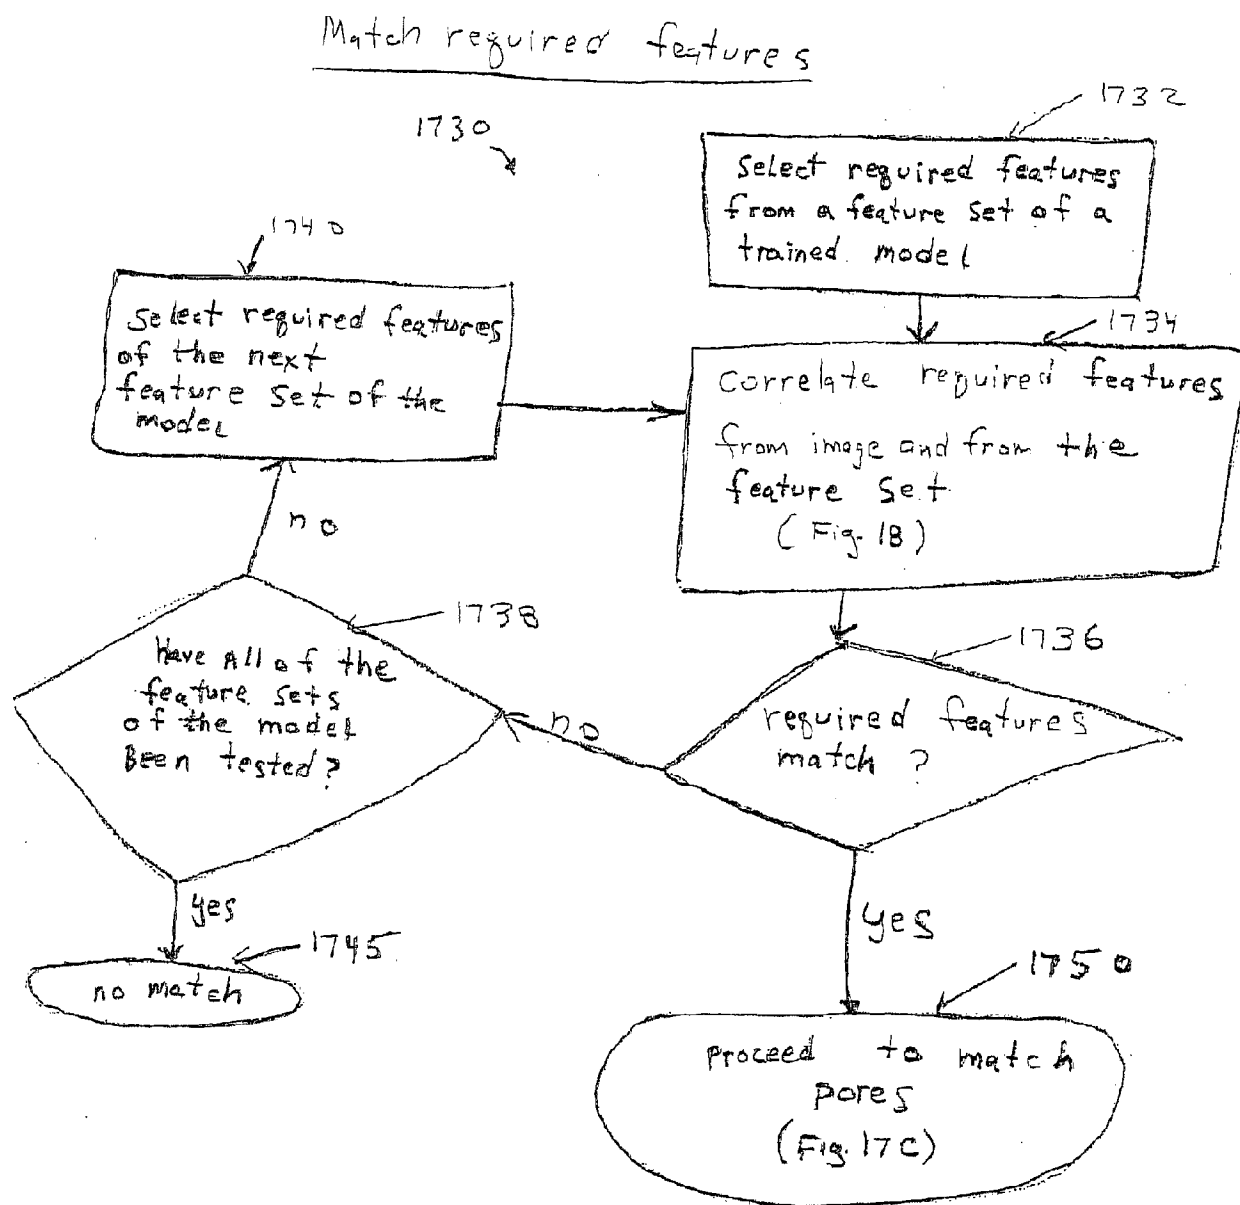 Match required features
1730
1732
Select required features
from a feature set of a
trained model
1740
Select required features
of the next
feature set of the
model
1734
Correlate required features
from image and from the
feature set
(Fig. 18)
no
1738
Have All of the
feature sets
of the model
Been tested?
no
1736
required features
match ?
yes
1745
no match
yes
1750
Proceed to match
pores
(Fig. 17C)